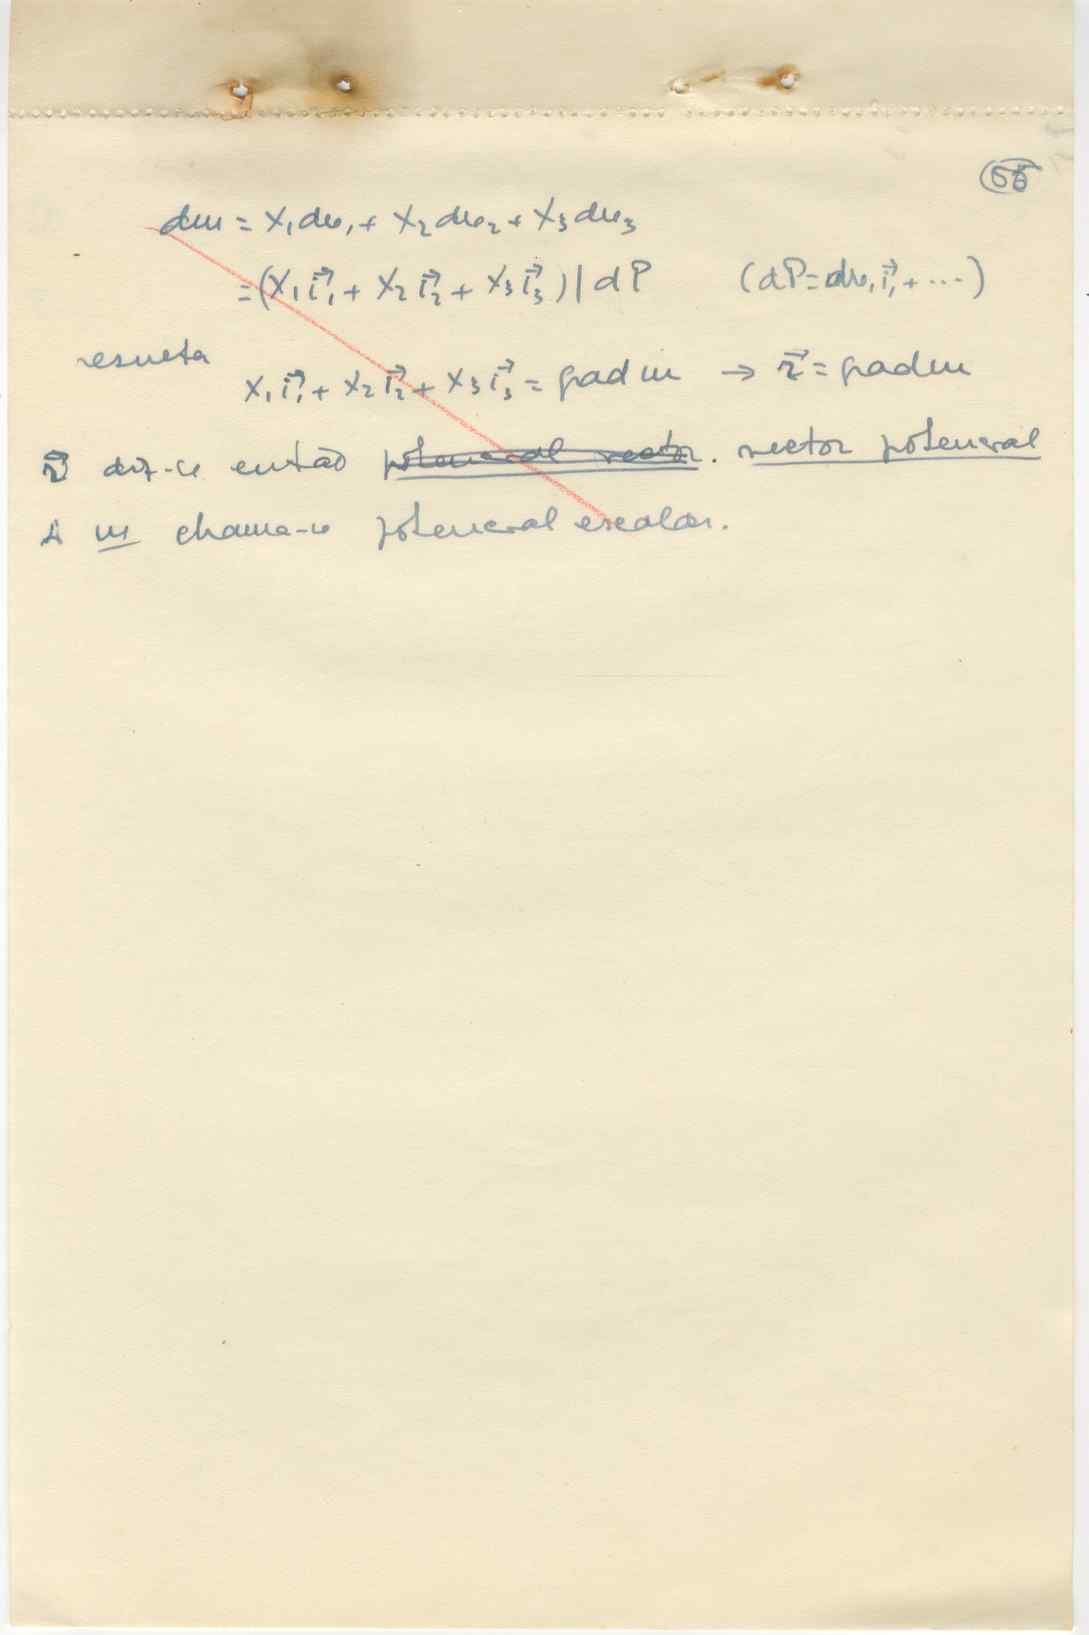 55
du = X₁du₁ + X₂du₂ + X₃du₃
= (X₁i⃗₁ + X₂i⃗₂ + X₃i⃗₃) | dP (dP = du₁i⃗₁ + ...)
resulta
X₁i⃗₁ + X₂i⃗₂ + X₃i⃗₃ = grad u → v⃗ = grad u
v⃗ diz-se então potencial vector. vector potencial
A u chama-se potencial escalar.